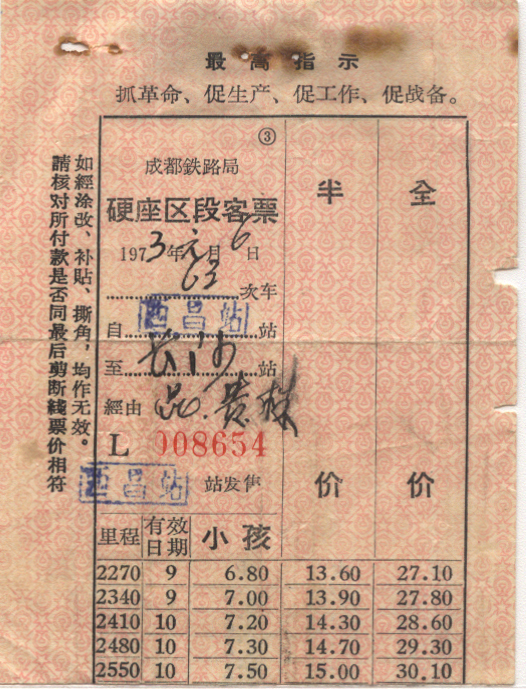 最高指示
抓革命、促生产、促工作、促战备。
如經涂改、补貼、撕角，均作无效。
請核对所付款是否同最后剪断綫票价相符
③
成都鉄路局
硬座区段客票
1973年元月6日
63次车
自西昌站站
至长沙站
經由 贵
L 008654
西昌站 站发售
半价
全价
里程 有效日期 小孩
2270 9 6.80 13.60 27.10
2340 9 7.00 13.90 27.80
2410 10 7.20 14.30 28.60
2480 10 7.30 14.70 29.30
2550 10 7.50 15.00 30.10